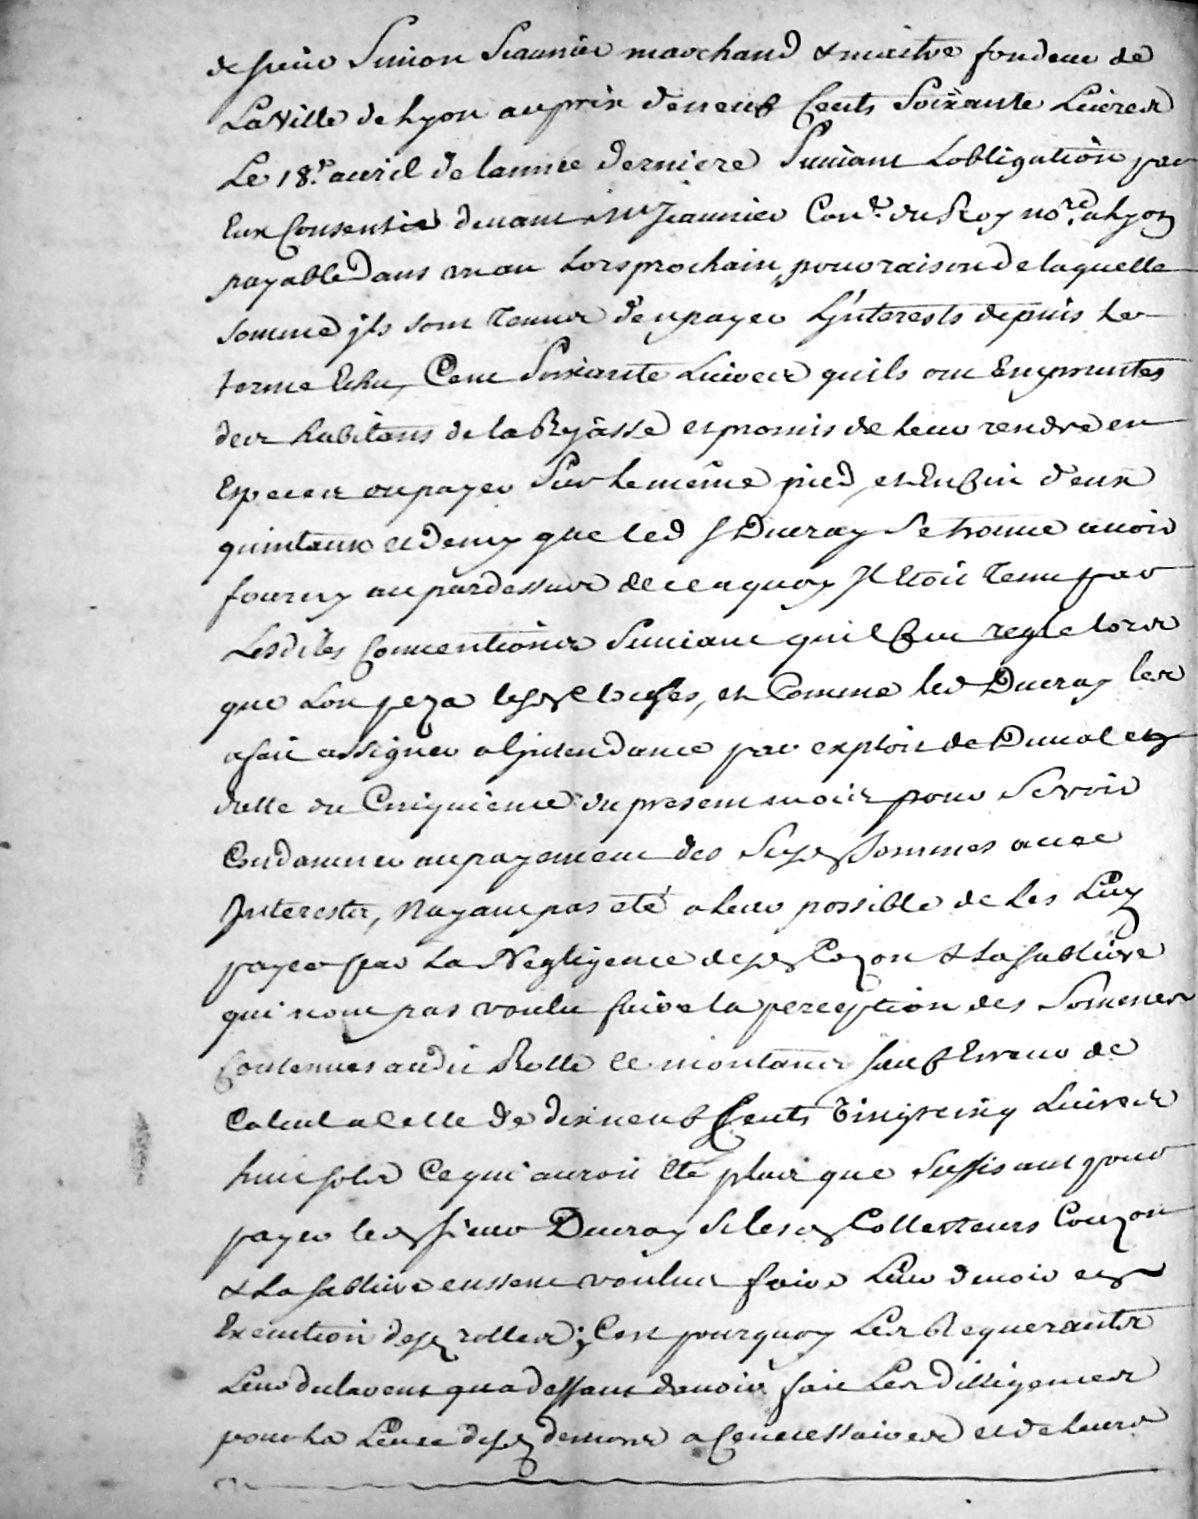 de sieur Simon Jeaunier marchand & maitre fondeur de
La Ville de Lyon au prix de neuf Cents Soixante Livres
Le 18.e avril de lannée derniere Suivant Lobligation par
Eux Consentie devant Me Jeaunier Con.er du Roy no.re a Lyon
payable dans un an Lors prochain, pour raison de laquelle
Somme jls sont Tenus d'en payer Ljnterests depuis Le
terme Echu, Cent Soixante Livres quils ont Empruntés
des habitans de la et promis de Leur rendre en
Especes ou payer Sur le même pied, et Enfin deux
quintaux et demy que led s.r Ducray Se trouve avoir
fourny au pardessus de ce aquoy Jl Etoit Tenu par
Lesdites Conventions Suivant quil fut reglé lors
que Lon peza lesd cloches, et Comme led Ducray les
a fait assigner a Ljntendance par exploit de Duval en
datte du Cinquieme du present mois pour Se voir
Condamner au payement des Susd Sommes avec
Jnterests, Nayant pas eté a Leur possible de Les Luy
payer par La Negligence desd Cozon & La Sabliere
qui nont pas voulu faire la perception des Sommes
Contenues audit Rolle le montant Sauf Erreur de
Calcul a Celle de dix neuf Cents vingt cinq Livres
huit Sols Ce qui auroit Eté plus que Suffisant pour
payer led Sieur Ducray Si lesd Collecteurs Couzon
& La Sabliere eussent voulus faire Leur devoir en
Execution desd rolles; C'est pourquoy Les Requerants
Leur declarent qua deffaut davoir fait Les dilligences
pour La Levée desd deniers a Ce necessaires et de Leurs